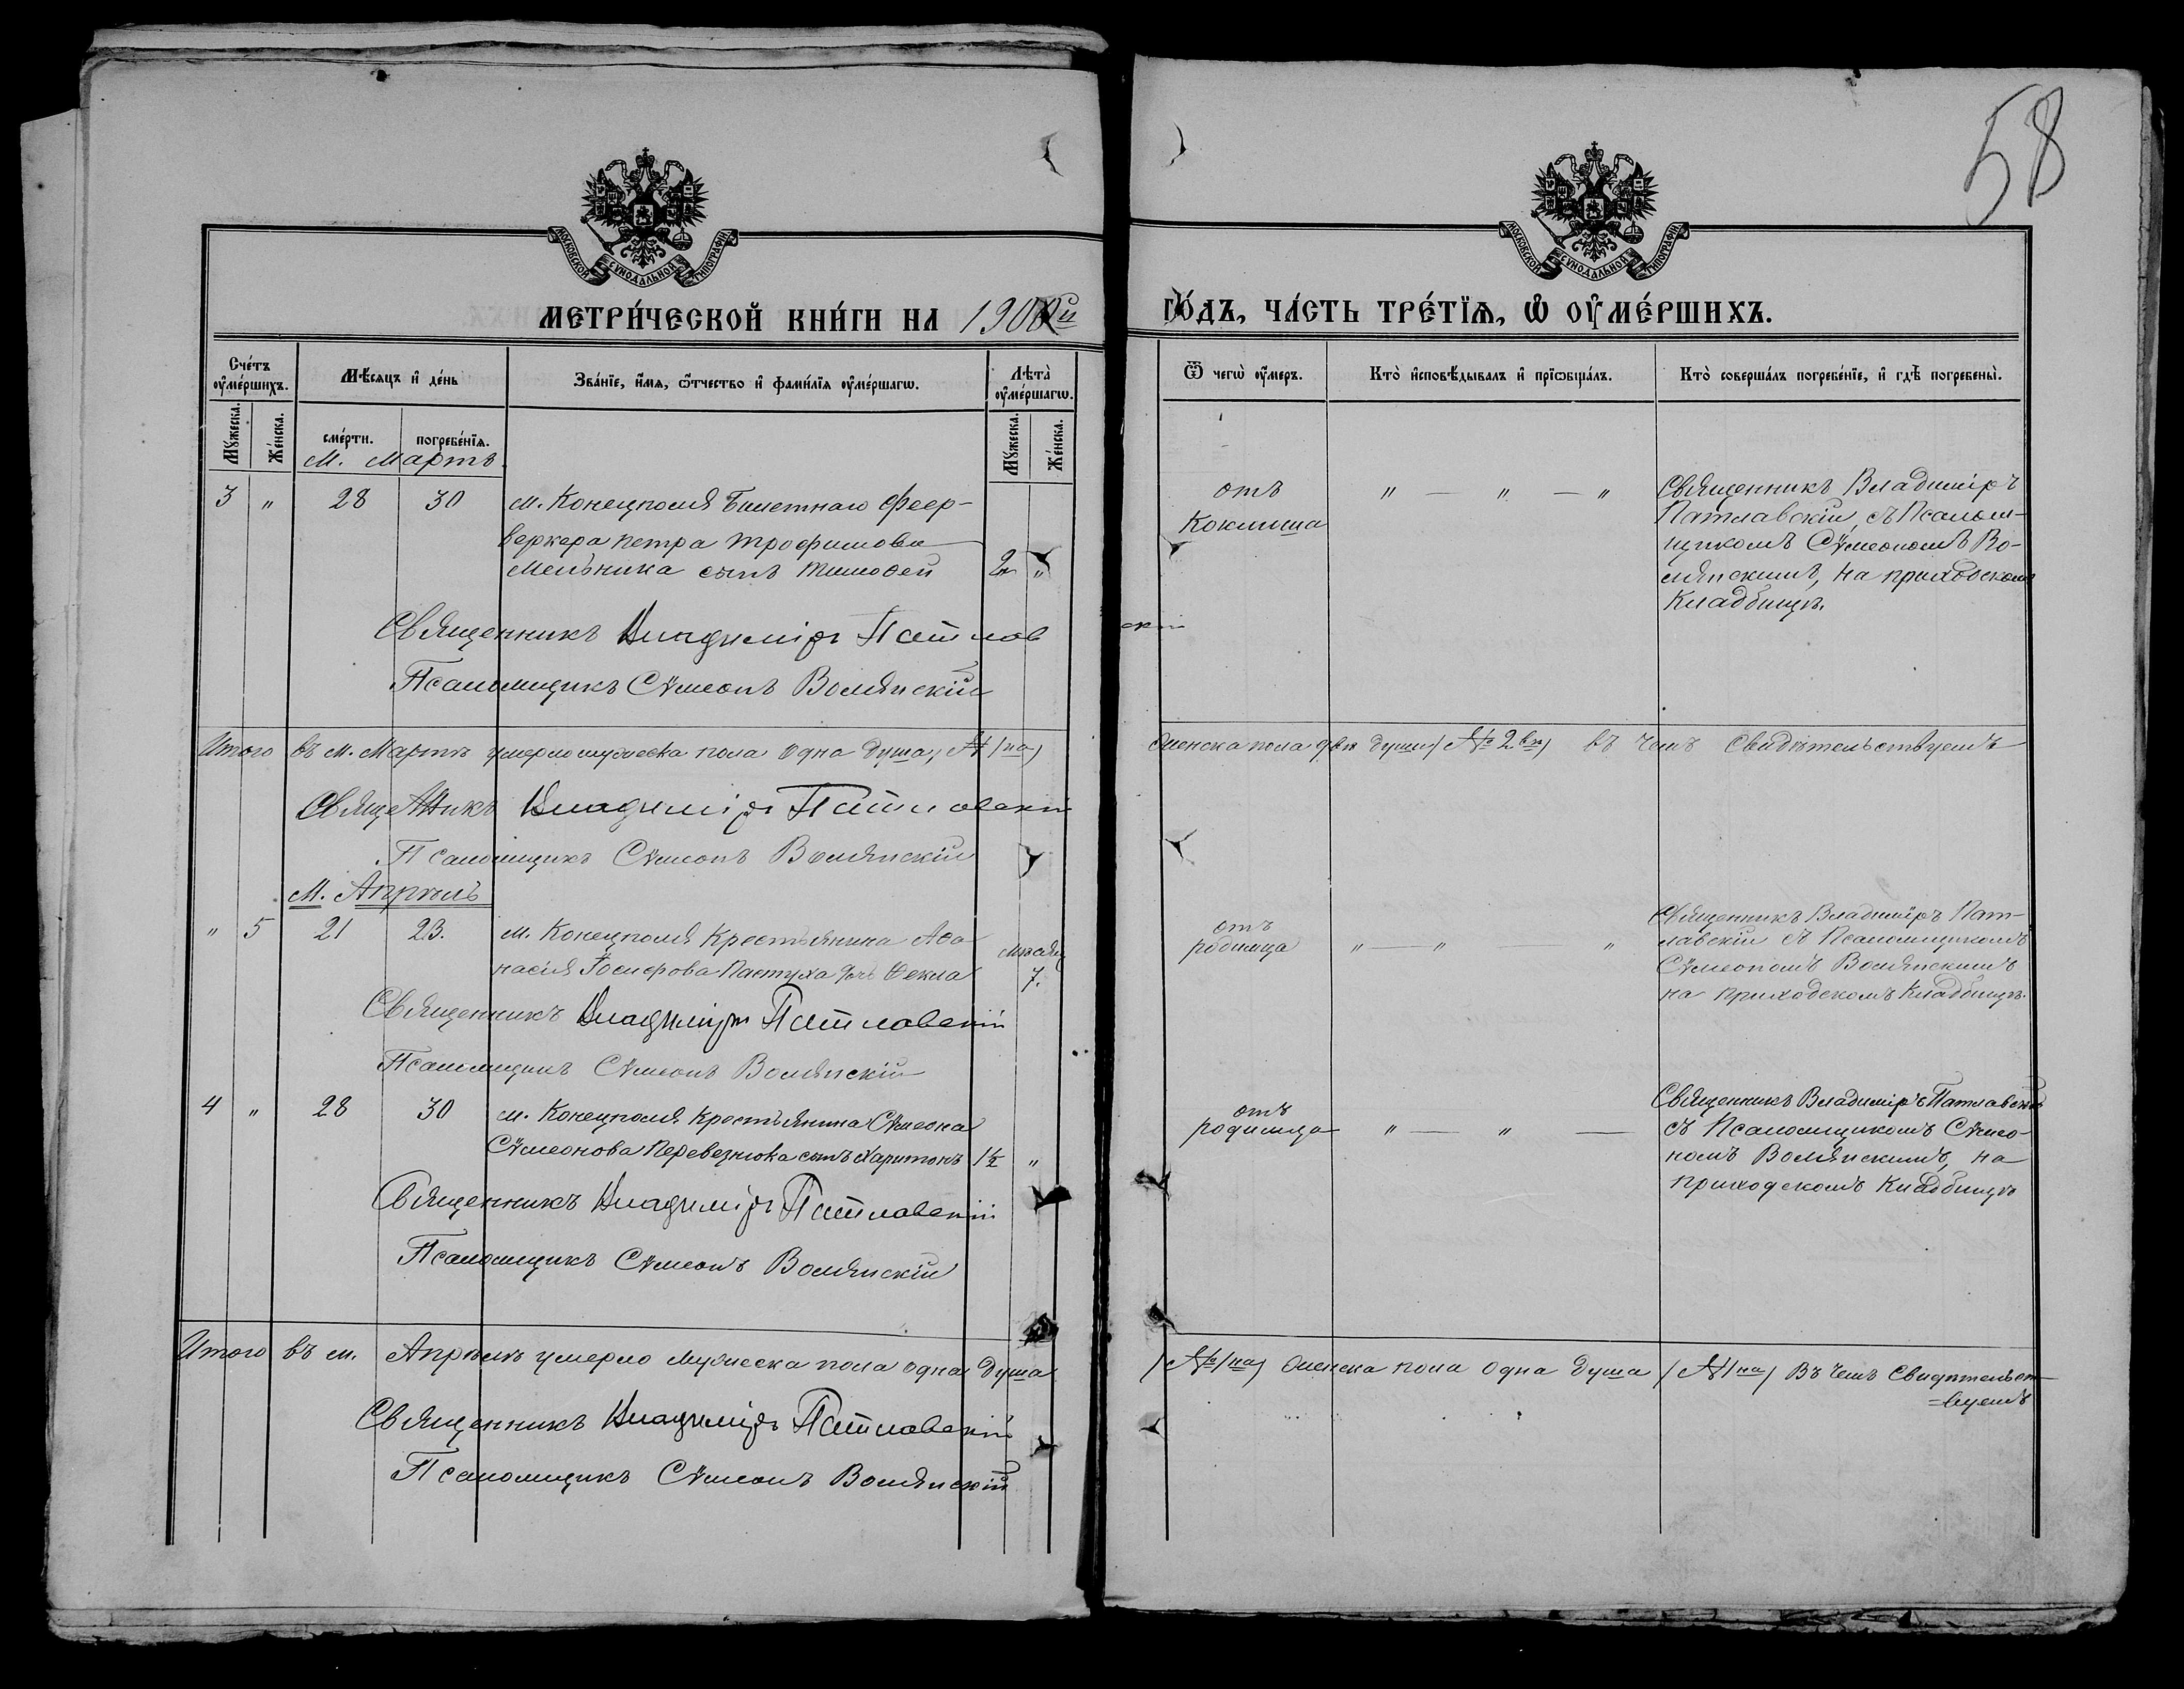 58
МОСКОВСКОЙ СѴНОДАЛЬНОЙ ТИПОГРАФІИ
МОСКОВСКОЙ СѴНОДАЛЬНОЙ ТИПОГРАФІИ
МЕТРИ́ЧЕСКОЙ КНИ́ГИ НА 190
ГО́ДЪ, ЧА́СТЬ ТРЕ́ТЇѦ, Ѡ҆ ОУ҆МЕ́РШИХЪ.
Сче́тъ оу҆ме́ршихъ.
Мѣ́сѧцъ и҆ де́нь
Зва́нїе, и҆́мѧ, ѻ҆́тчество и҆ фами́лїѧ оу҆ме́ршагѡ.
Лѣ́та оу҆ме́ршагѡ.
Ѿ чегѡ̀ оу҆́меръ.
Кто̀ и҆сповѣ́дывалъ и҆ прїѡбща́лъ.
Кто̀ соверша́лъ погребе́нїе, и҆ гдѣ̀ погребены̀.
Мꙋ́жеска.
Же́нска.
сме́рти.
погребе́нїѧ.
Мꙋ́жеска.
Же́нска.
М. Мартъ.
3 " 28 30 м. Конецполя Билетнаго Феер-
веркера Петра Трофимова
Мельника сынъ Тимофей 2 "
отъ
Коклюша
" — " — "
Священникъ Владиміръ
Патлавскій, съ Псалом-
щикомъ Сѵмеономъ Во-
лянскимъ, на приходскомъ
Кладбищѣ.
Священникъ Владиміръ Патлав
скій
Псаломщикъ Сѵмеонъ Волянскій
Итого въ м. Мартѣ умерло мужеска пола одна душа, (№ 1на)
женска пола двѣ души (№ 2вѣ) въ чемъ Свидѣтельствуемъ
Священникъ Владиміръ Патлавскій
Псаломщикъ Сѵмеонъ Волянскій
М. Апрѣль
" 5 21 23. м. Конецполя Крестьянина Афа-
насія Іосифова Пастуха дчь Фекла
мѣсяц
7.
отъ
родимца
" — " "
Священникъ Владиміръ Пат-
лавскій съ Псаломщикомъ
Сѵмеономъ Волянскимъ
на приходскомъ Кладбищѣ.
Священникъ Владиміръ Патлавскій
Псаломщикъ Сѵмеонъ Волянскій
4 " 28 30 м. Конецполя Крестьянина Сѵмеона
Сѵмеонова Перевезнюка сынъ Харитонъ 1½ "
отъ
родимца
" — " —
Священникъ Владиміръ Патлавскій
съ Псаломщикомъ Сѵмео-
номъ Волянскимъ, на
приходскомъ Кладбищѣ
Священникъ Владиміръ Патлавскій
Псаломщикъ Сѵмеонъ Волянскій
Итого въ м. Апрѣлѣ умерло мужеска пола одна душа
(№ 1на) женска пола одна душа (№ 1на) Въ чемъ Свидѣтельст-
=вуемъ
Священникъ Владиміръ Патлавскій
Псаломщикъ Сѵмеонъ Волянскій